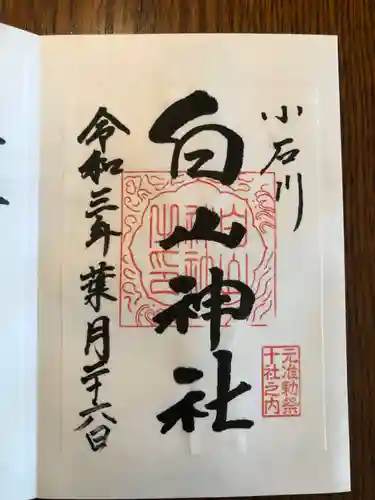 小石川
白山神社
令和三年葉月二十六日
白山神社之印
元准勅祭
十社之内